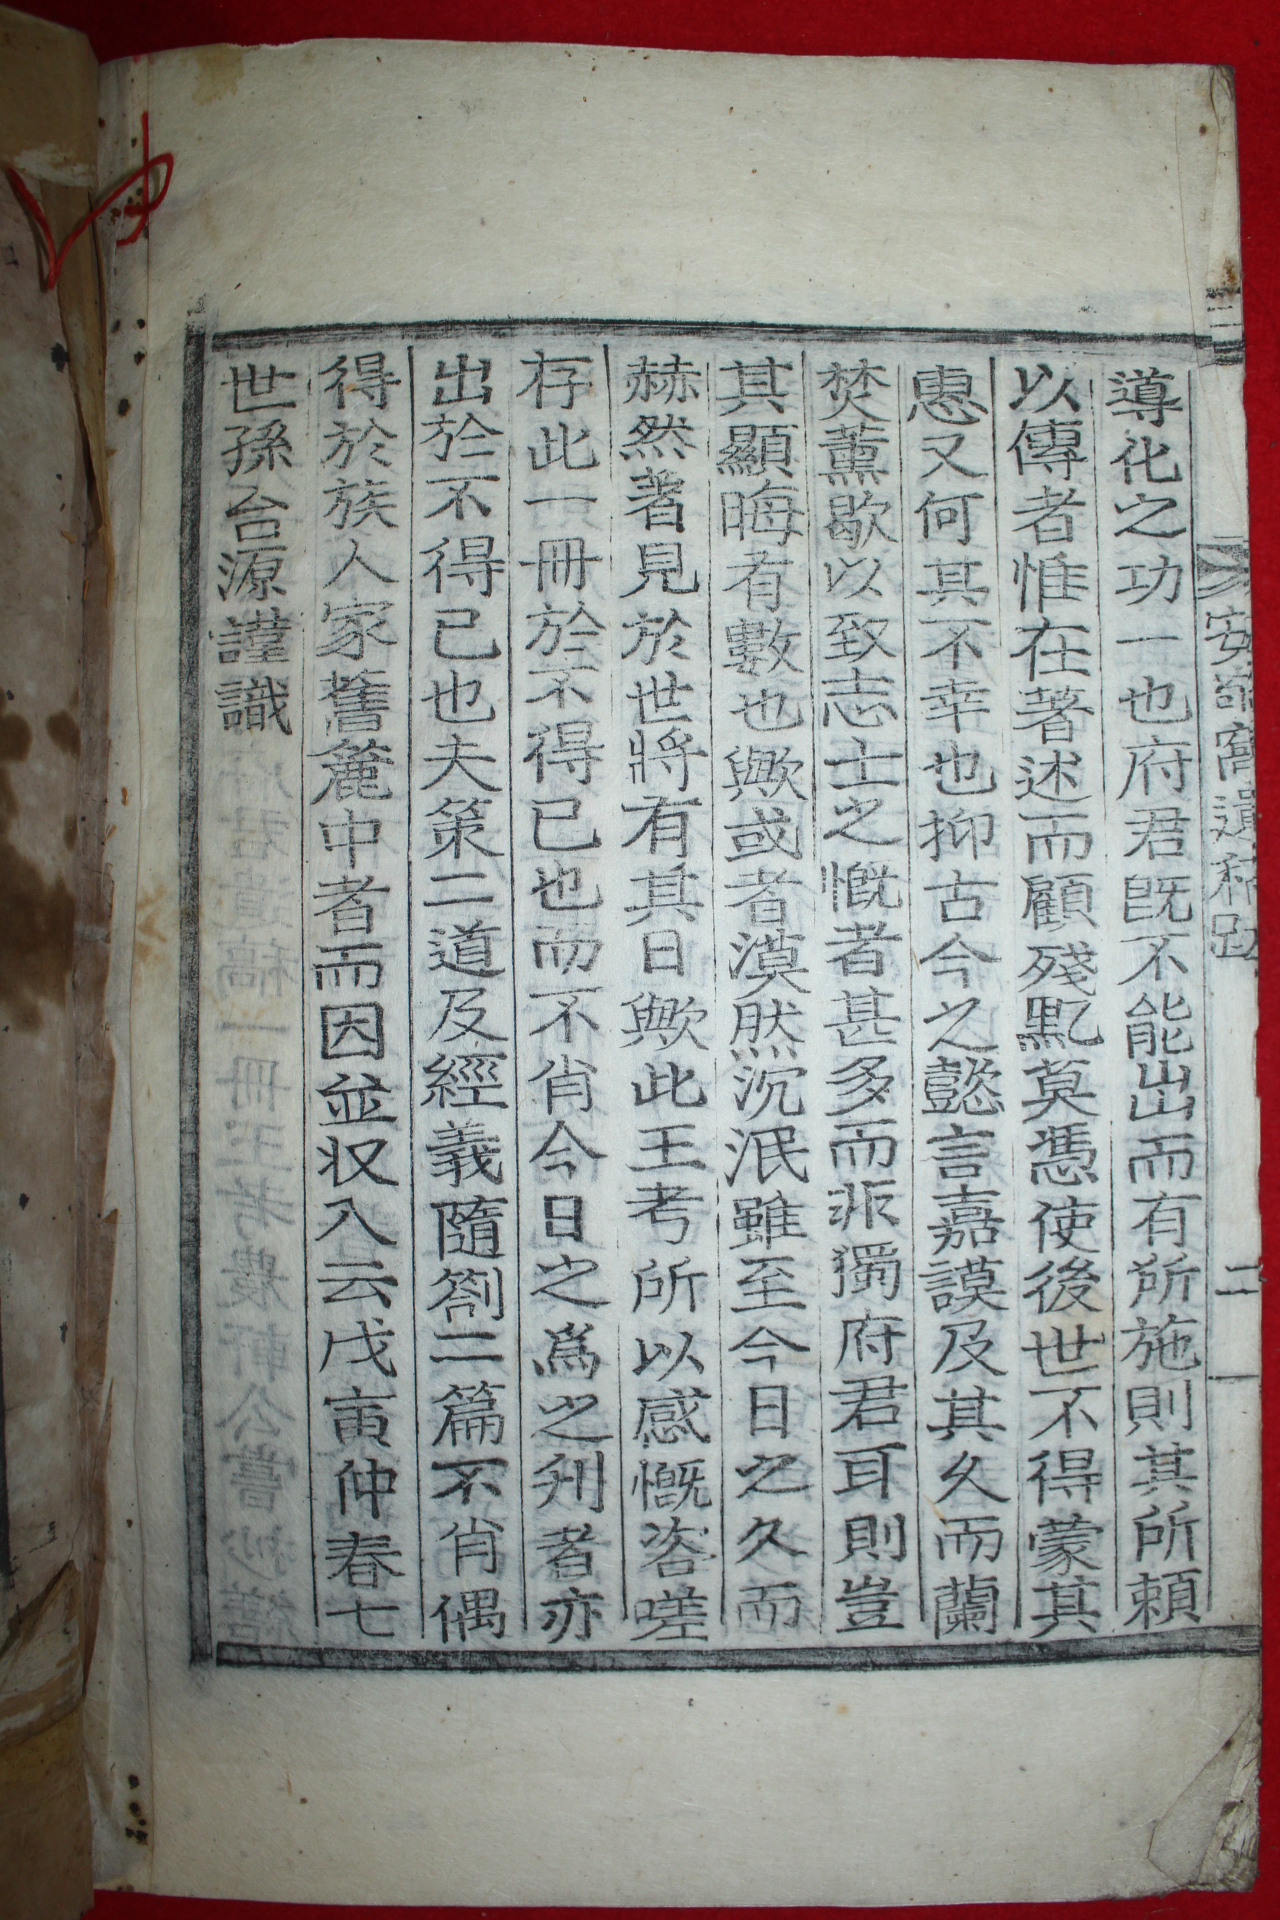 導化之功一也府君旣不能出而有所施則其所賴
以傳者惟在著述而顧殘㸃莫憑使後世不得蒙其
惠又何其不幸也抑古今之懿言嘉謨及其久而蘭
焚薰歇以致志士之慨者甚多而非獨府君耳則豈
其顯晦有數也歟或者漠然沉泯雖至今日之久而
赫然著見於世將有其日歟此王考所以感慨咨嗟
存此一冊於不得已也而不肖今日之爲之刋者亦
出於不得已也夫策二道及經義隨劄二篇不肖偶
得於族人家舊簏中者而因並収入云戊寅仲春七
世孫台源謹識
安 窩遺稿跋
二